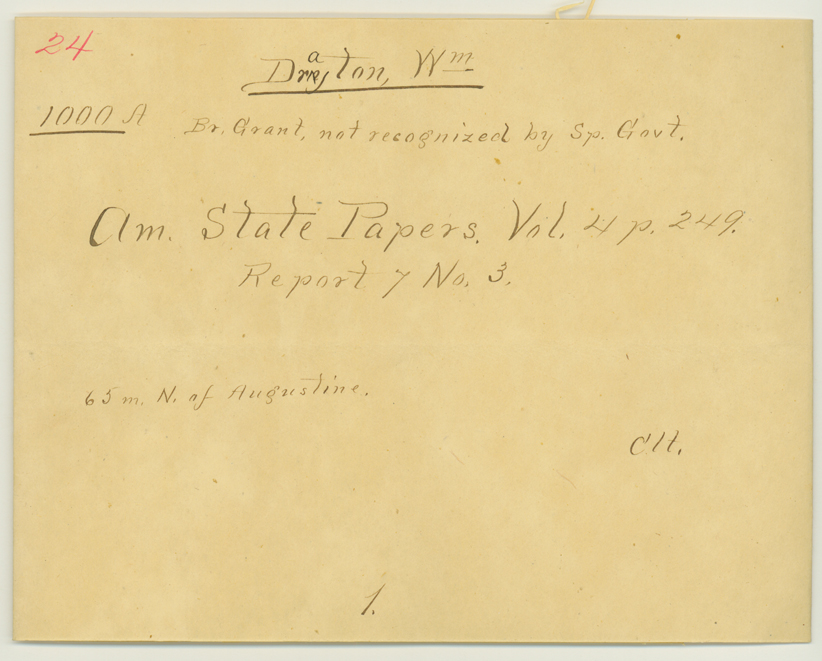 24
Drayton, Wm
1000 A Br. Grant, not recognized by Sp. Govt.
Am. State Papers. Vol. 4 p. 249.
Report 7 No. 3.
65 m. N. of Augustine.
Clt.
1.